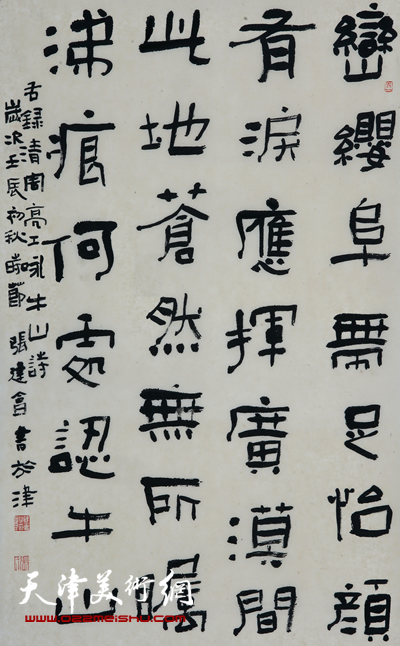 巒纓阜無足怡顏
有淚應揮廣漠間
此地蒼然無所矚
涕痕何處認牛山
右錄清周高工詠牛山詩
歲次壬辰初秋時節 張建會書於津
天津美術網